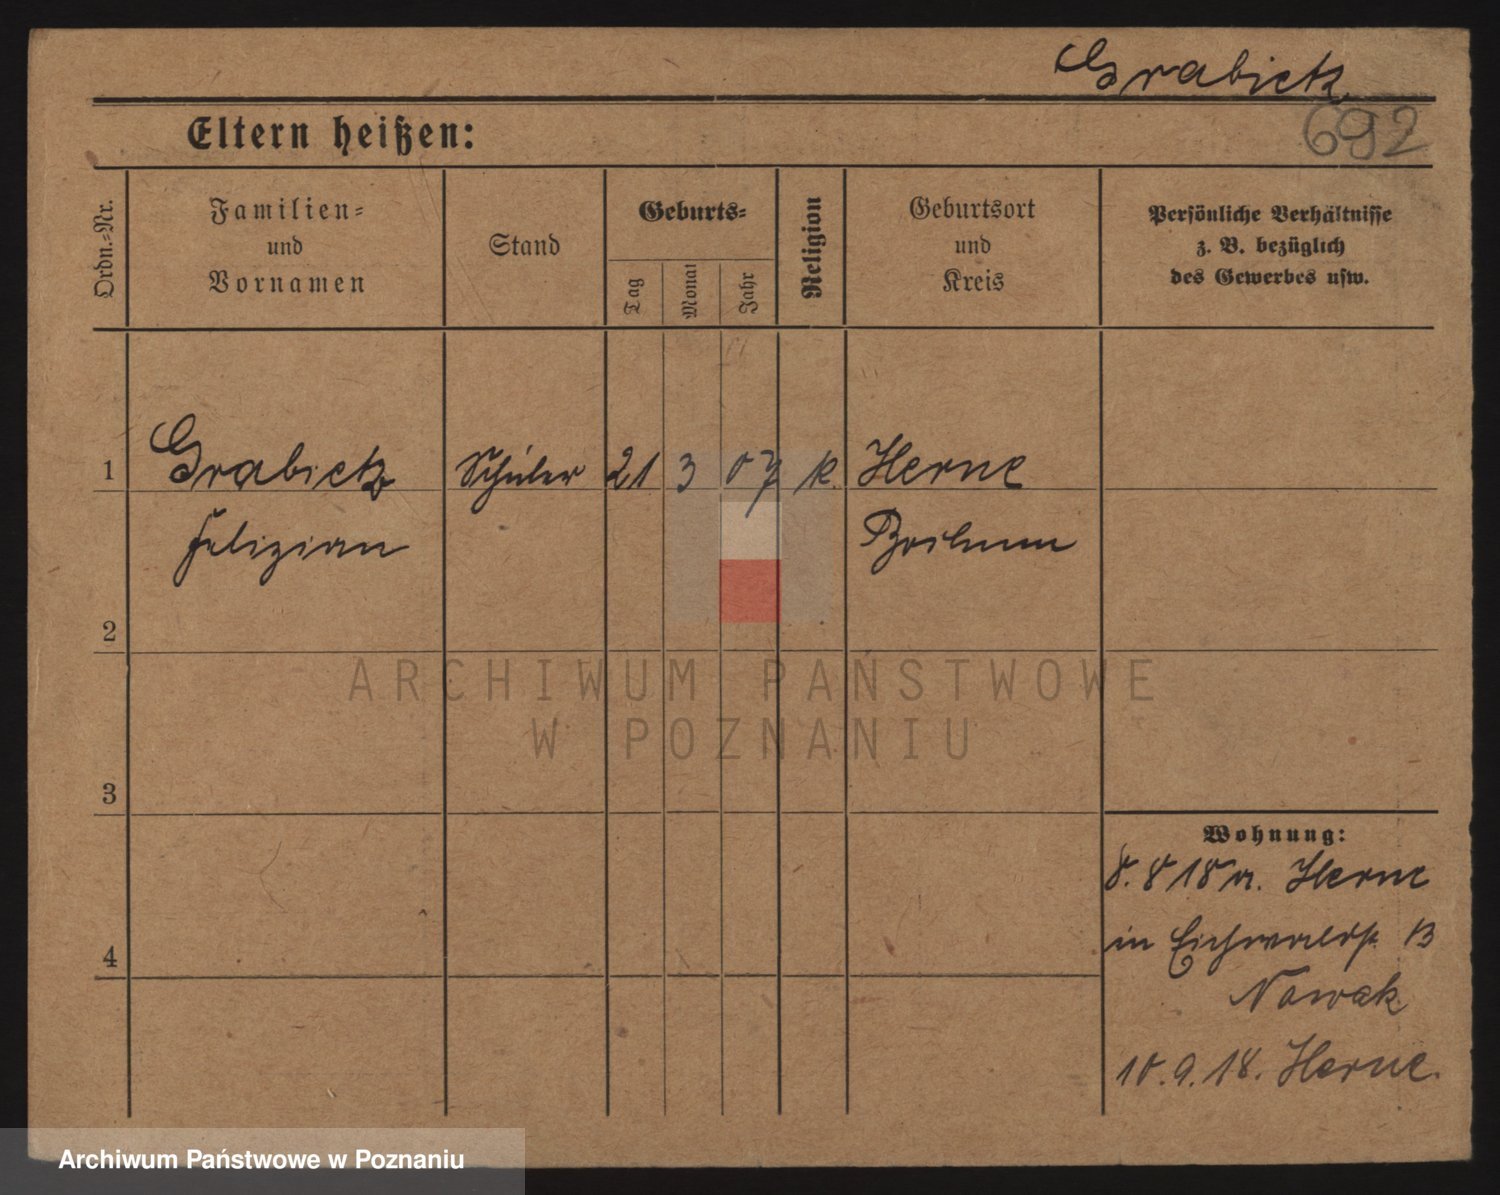 Grabietz
Eltern heißen:
692
Ordn.-Nr.
Familien-
und
Vornamen
Stand
Geburts-
Tag
Monat
Jahr
Religion
Geburtsort
und
Kreis
Persönliche Verhältnisse
z. B. bezüglich
des Gewerbes usw.
1 Grabietz Schüler 21 3 07 k. Herne
Felizian Bochum
2
3
4
Wohnung:
8.8 18 v. Herne
in Eichwaldstr. 13
Nowak
10.9.18. Herne.
ARCHIWUM PAŃSTWOWE
W POZNANIU
Archiwum Państwowe w Poznaniu